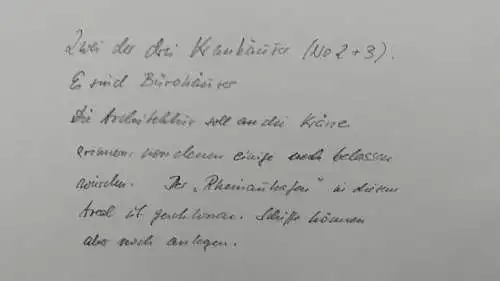 Zwei der drei Kranhäuser (No 2 + 3).
Es sind Bürohäuser
Die Architektur soll an die Kräne
erinnern von denen einige noch belassen
wurden. Der „Rheinauhafen" in diesem
Areal ist geschlossen. Schiffe können
aber noch anlegen.